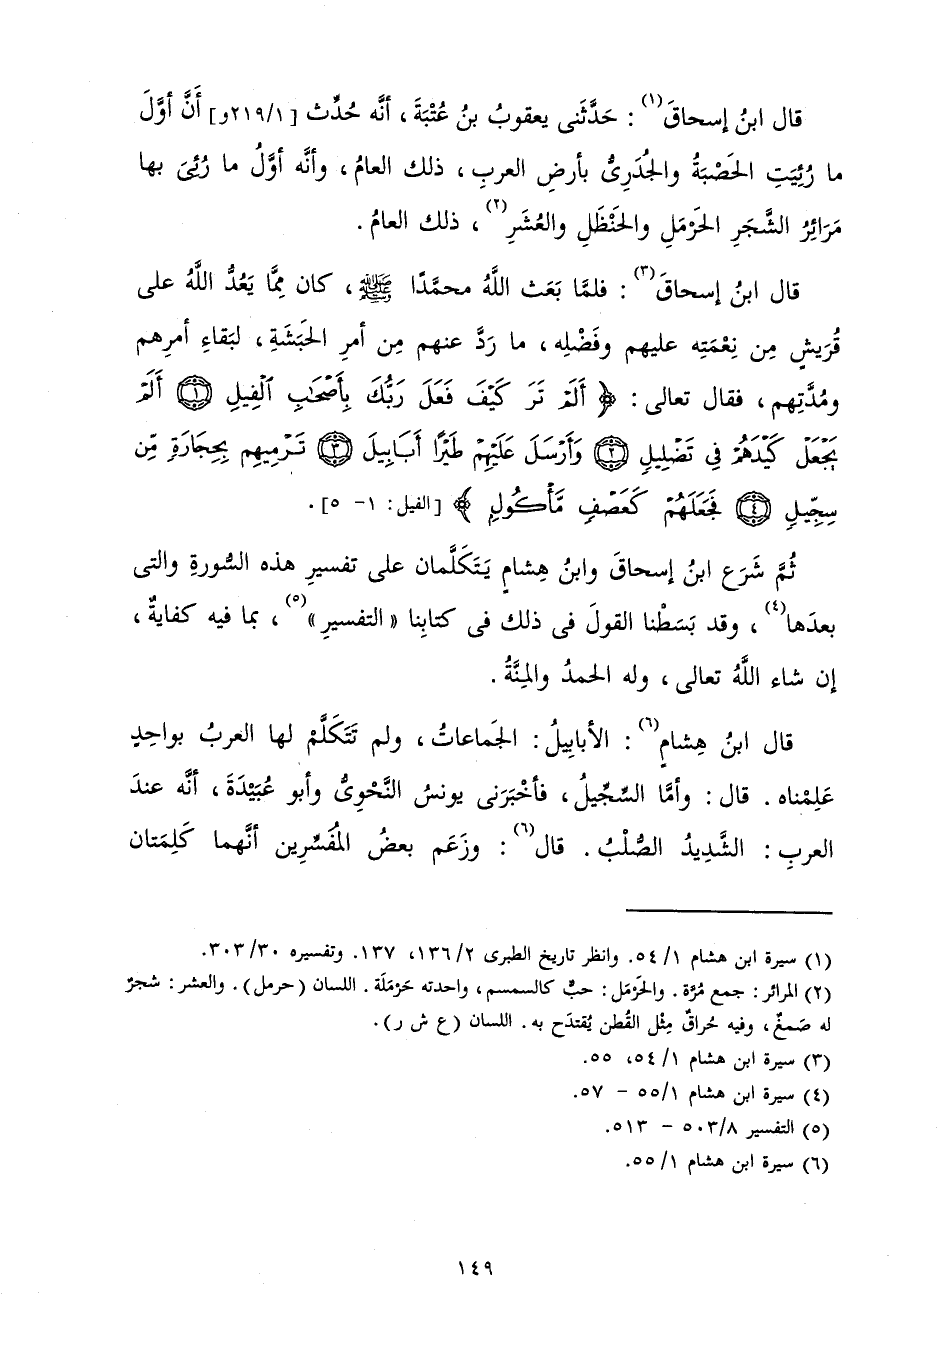 قال ابنُ إسحاقَ(١) : حَدَّثَنى يعقوبُ بنُ عُتْبَةَ ، أنَّه حُدِّث [٢١٩/١و] أَنَّ أوَّلَ
ما رُئِيَتِ الحَصْبَةُ والجُدَرِىُّ بأرضِ العربِ ، ذلك العامُ ، وأنَّه أوَّلُ ما رُئِىَ بها
مَرَائِرُ الشَّجَرِ الحَرْمَلِ والحَنْظَلِ والعُشَرِ(٢) ، ذلك العامُ .
قال ابنُ إسحاقَ(٣) : فلمَّا بَعَث اللَّهُ محمَّدًا ﷺ ، كان مِمَّا يَعُدُّ اللَّهُ على
قُرَيشٍ مِن نِعْمَتِه عليهم وفَضْلِه ، ما رَدَّ عنهم مِن أمرِ الحَبَشَةِ ، لبَقاءِ أمرِهم
ومُدَّتِهم ، فقال تعالى : ﴿ أَلَمْ تَرَ كَيْفَ فَعَلَ رَبُّكَ بِأَصْحَٰبِ ٱلْفِيلِ ١ أَلَمْ
يَجْعَلْ كَيْدَهُمْ فِى تَضْلِيلٍ ٢ وَأَرْسَلَ عَلَيْهِمْ طَيْرًا أَبَابِيلَ ٣ تَرْمِيهِم بِحِجَارَةٍ مِّن
سِجِّيلٍ ٤ فَجَعَلَهُمْ كَعَصْفٍ مَّأْكُولٍ ﴾ [الفيل: ١- ٥] .
ثُمَّ شَرَع ابنُ إسحاقَ وابنُ هِشامٍ يَتَكَلَّمان على تفسيرِ هذه السُّورةِ والتى
بعدَها(٤) ، وقد بَسَطْنا القولَ فى ذلك فى كتابِنا «التفسيرِ»(٥) ، بما فيه كفايةٌ ،
إن شاء اللَّهُ تعالى ، وله الحمدُ والمِنَّةُ .
قال ابنُ هِشامٍ(٦) : الأبابِيلُ : الجَماعاتُ ، ولم تَتَكَلَّمْ لها العربُ بواحِدٍ
عَلِمْناه . قال : وأمَّا السِّجِّيلُ ، فأخْبَرَنى يونسُ النَّحْوِىُّ وأبو عُبَيْدَةَ ، أنَّه عندَ
العربِ : الشَّدِيدُ الصُّلْبُ . قال(٦) : وزَعَم بعضُ المُفَسِّرِين أنَّهما كَلِمَتان
(١) سيرة ابن هشام ١/ ٥٤. وانظر تاريخ الطبرى ٢/ ١٣٦، ١٣٧. وتفسيره ٣٠/ ٣٠٣.
(٢) المرائر : جمع مُرَّة . والحَرْمَل : حبٌّ كالسمسم ، واحدته حَرْمَلَة . اللسان (حرمل) . والعشر : شجرٌ
له صَمغٌ ، وفيه حُراقٌ مِثْل القُطن يُقتدَح به . اللسان (ع ش ر) .
(٣) سيرة ابن هشام ١/ ٥٤، ٥٥.
(٤) سيرة ابن هشام ١/ ٥٥ - ٥٧.
(٥) التفسير ٨/ ٥٠٣ - ٥١٣.
(٦) سيرة ابن هشام ١/ ٥٥.
١٤٩